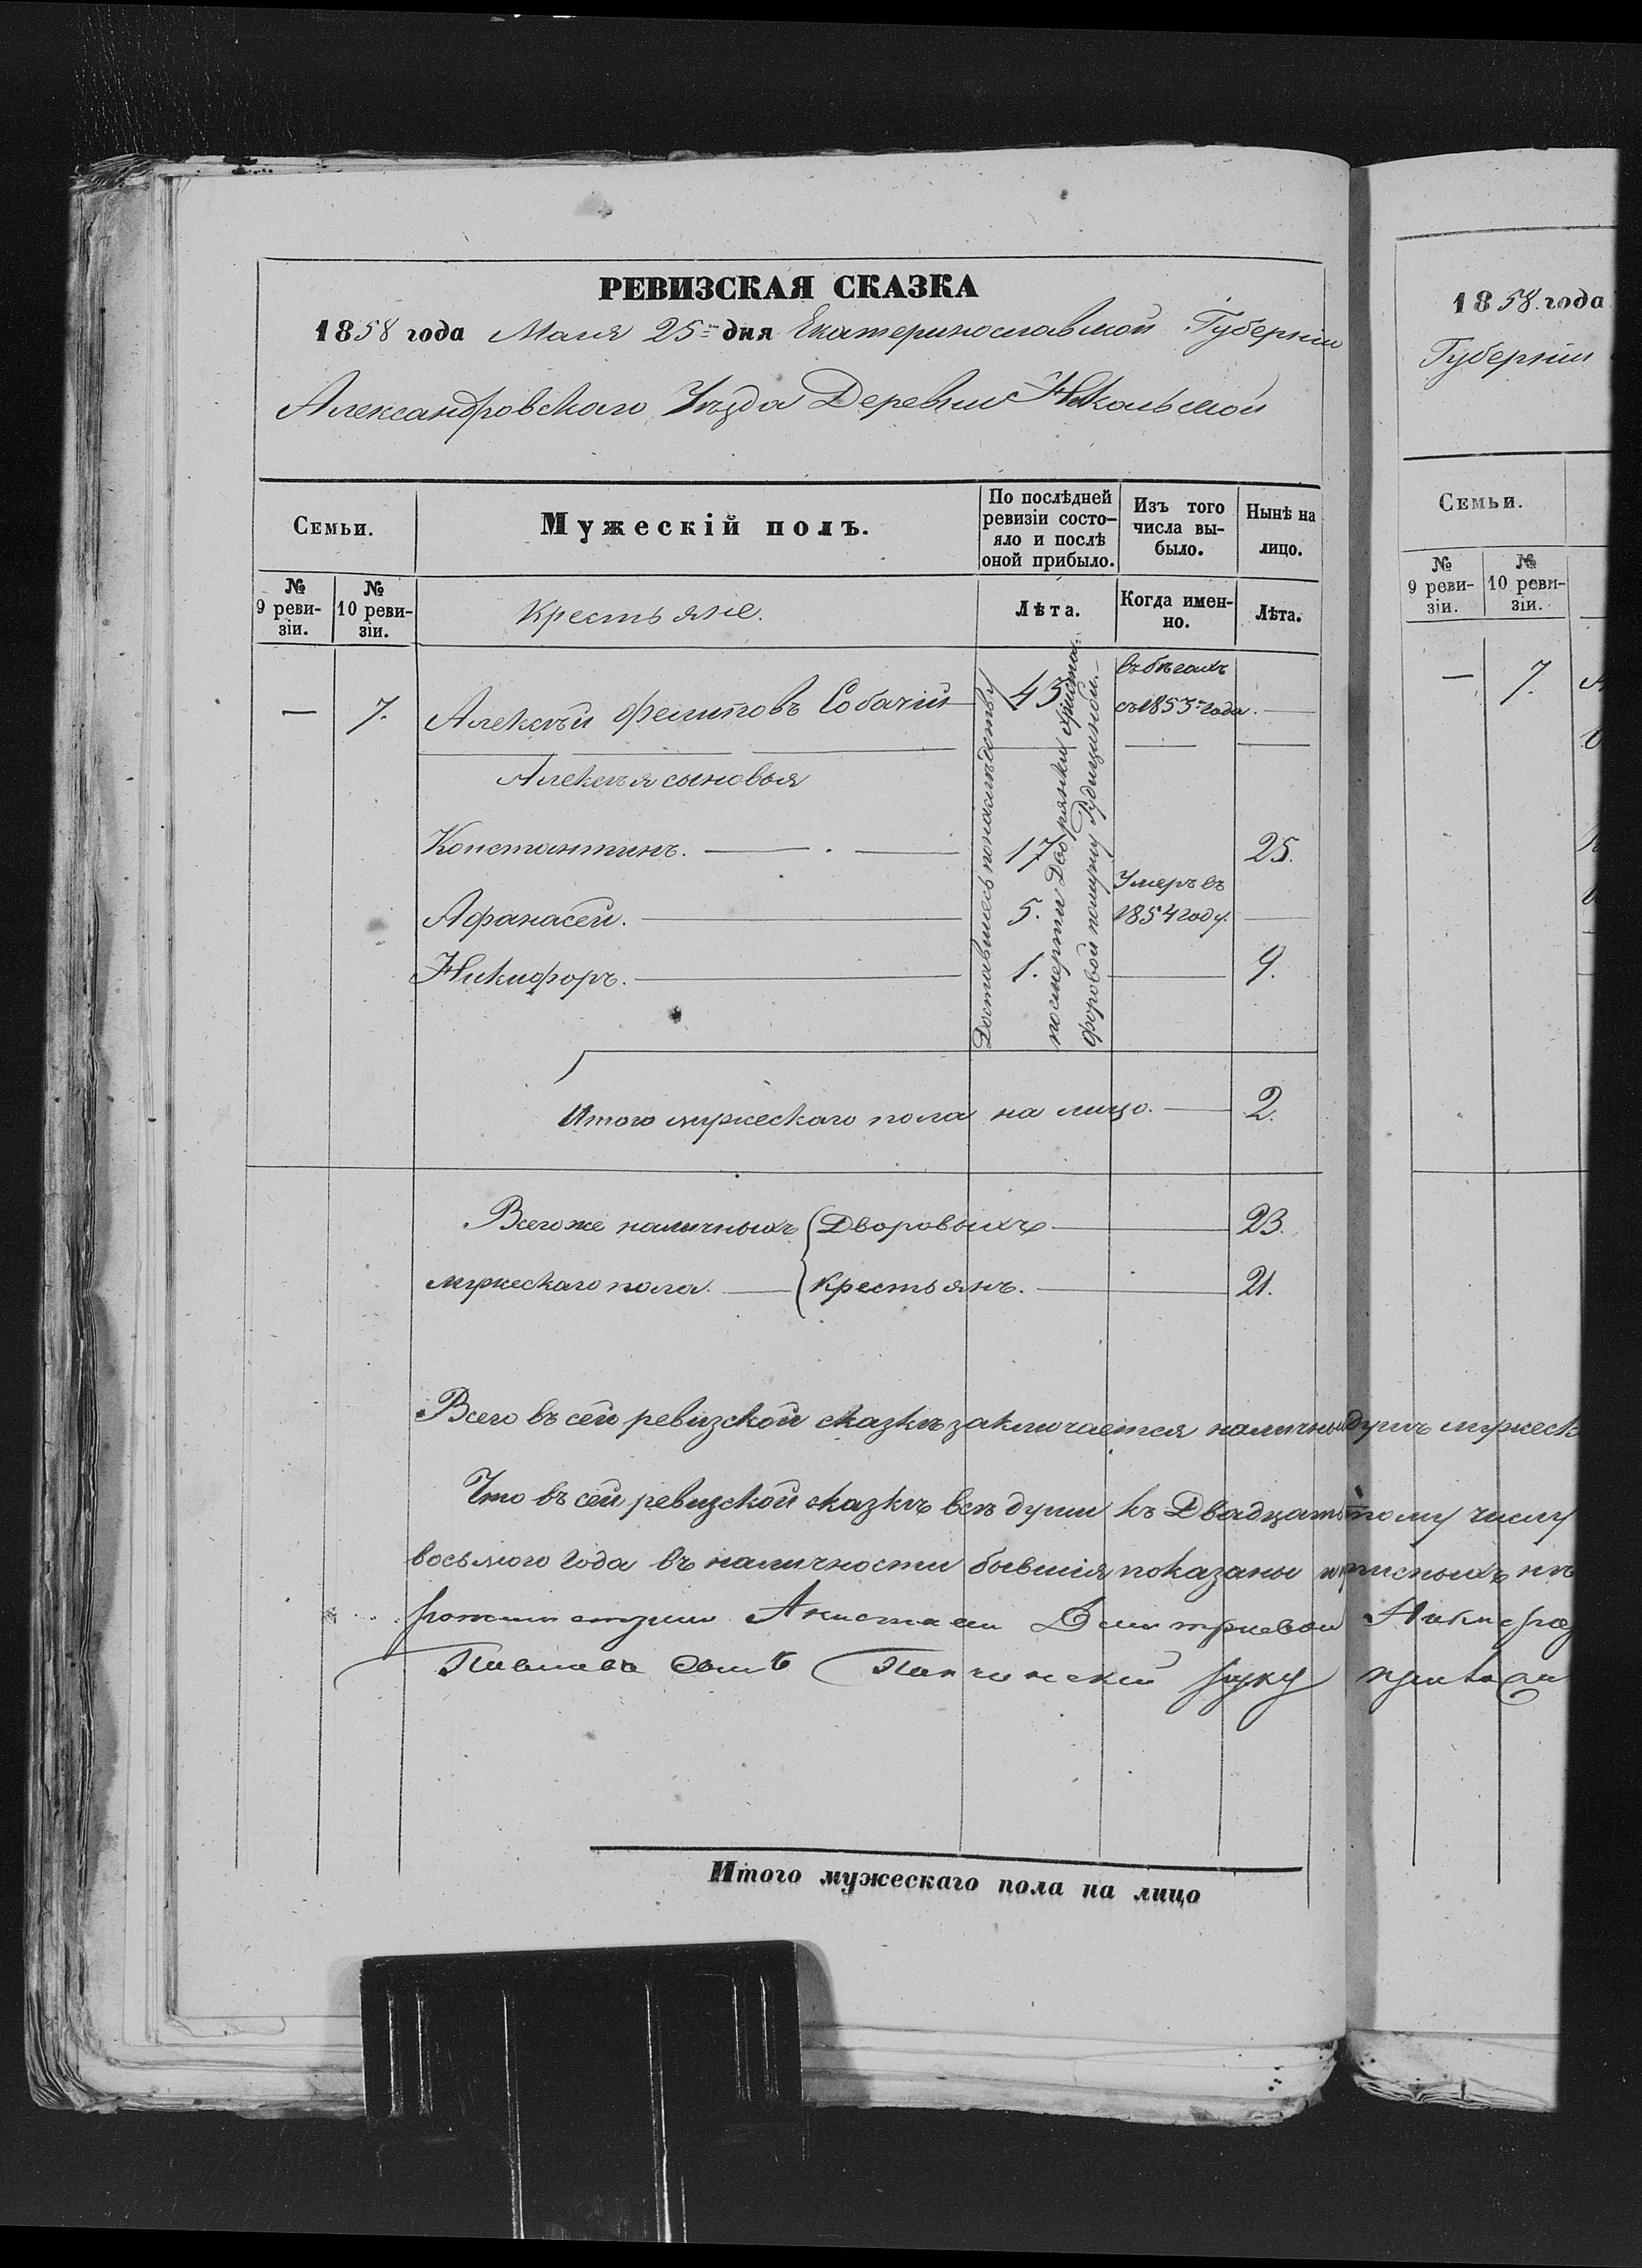 РЕВИЗСКАЯ СКАЗКА
1858 года Маия 25го дня Екатеринославской Губерніи
Александровскаго Уѣзда Деревни Никольской
Семьи.
Мужескій полъ.
По послѣдней ревизіи состо-яло и послѣ оной прибыло.
Изъ того числа вы-было.
Нынѣ на лицо.
№ 9 реви-зіи.
№ 10 реви-зіи.
Крестьяне.
Лѣта.
Когда имен-но.
Лѣта.
— 7. Алексѣй Филиповъ Собачій 43 въ бѣгахъ съ 1853го года. —
Алексѣя сыновья
Константинъ. 17 25.
Афанасей. 5. Умеръ въ 1854 году. —
Никифоръ. 1. — 9.
Доставшiесь по наслѣдству
по смерти Дворянки Христо
форовой помужу Гудищиной.
Итого мужескаго пола на лицо. 2.
Всего же наличныхъ Дворовыхъ 23.
мужескаго пола. Крестьянъ. 21.
Всего въ сей ревизской сказкѣ заключается наличныхъ душъ мужеск
Что въ сей ревизской сказкѣ всѣ души къ Двадцать тому числу
восьмого года въ наличности бывшія показаны и
Дмитриевой
руку
Итого мужескаго пола на лицо
1858. года
Губерніи
Семьи.
№ 9 реви-зіи.
№ 10 реви-зіи.
— 7.